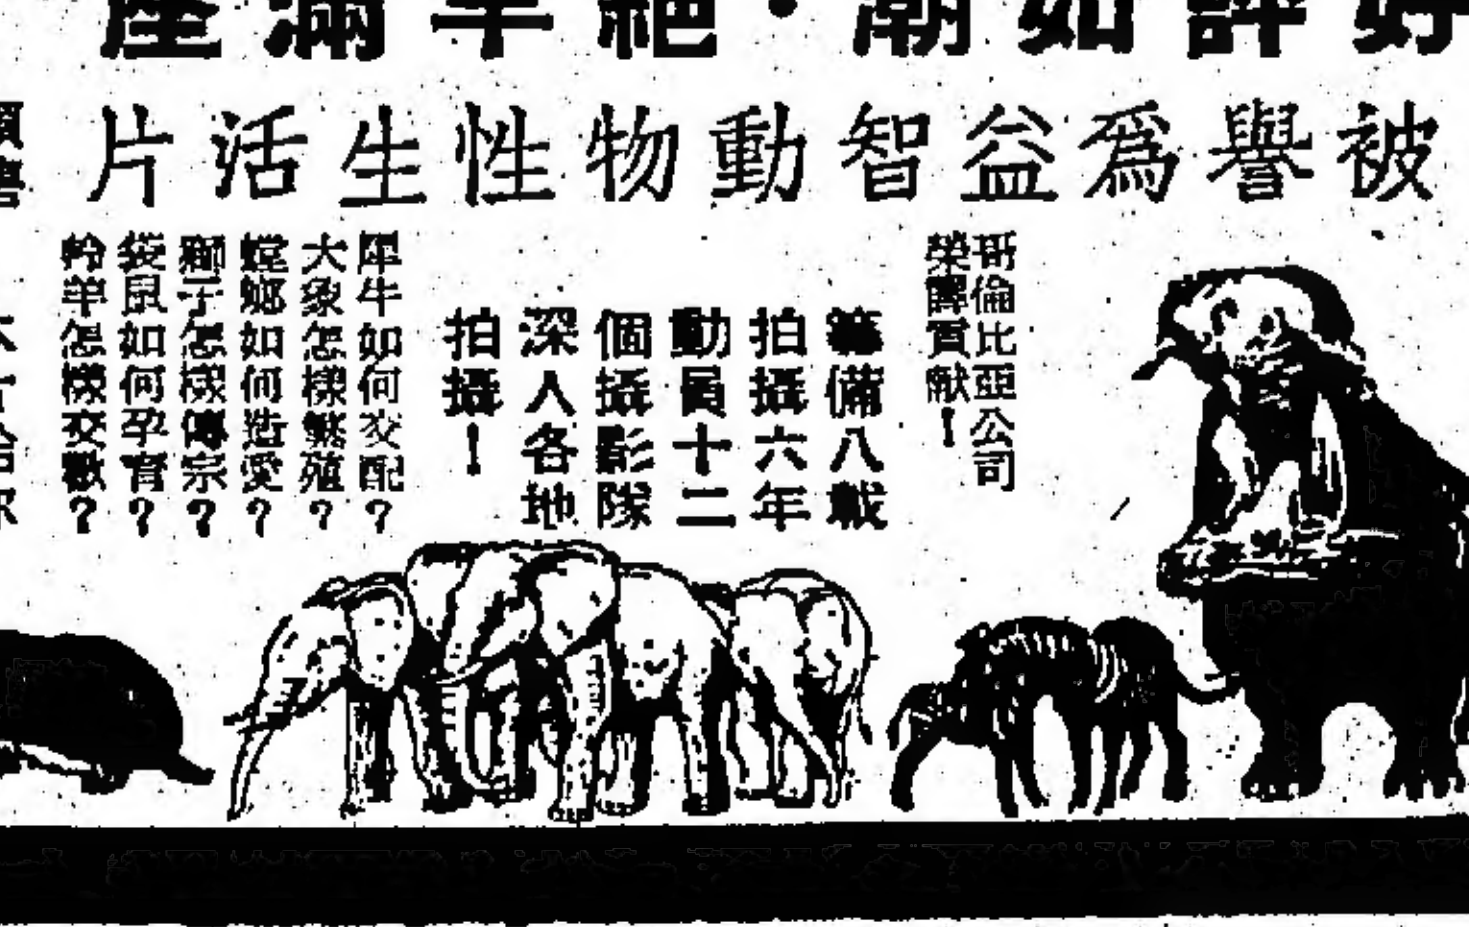 好評如潮·絕早滿座
被譽爲益智動物性生活片
哥倫比亞公司
榮譽貢献！
籌備八載
拍攝六年
動員十二
個攝影隊
深入各地
拍攝！
犀牛如何交配？
大象怎樣繁殖？
螳螂如何造愛？
獅子怎樣傳宗？
袋鼠如何孕育？
羚羊怎樣交歡？